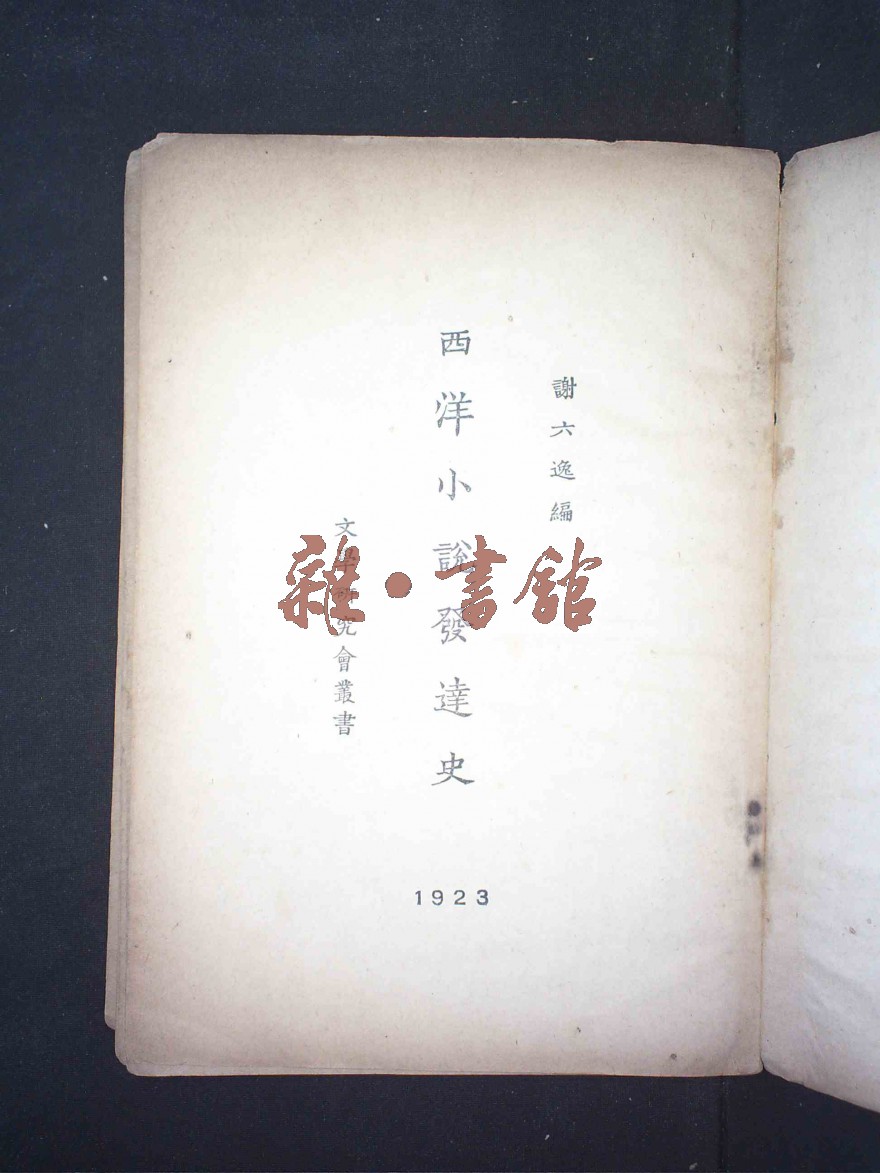 謝六逸編
西洋小說發達史
文學研究會叢書
1923
雜·書館